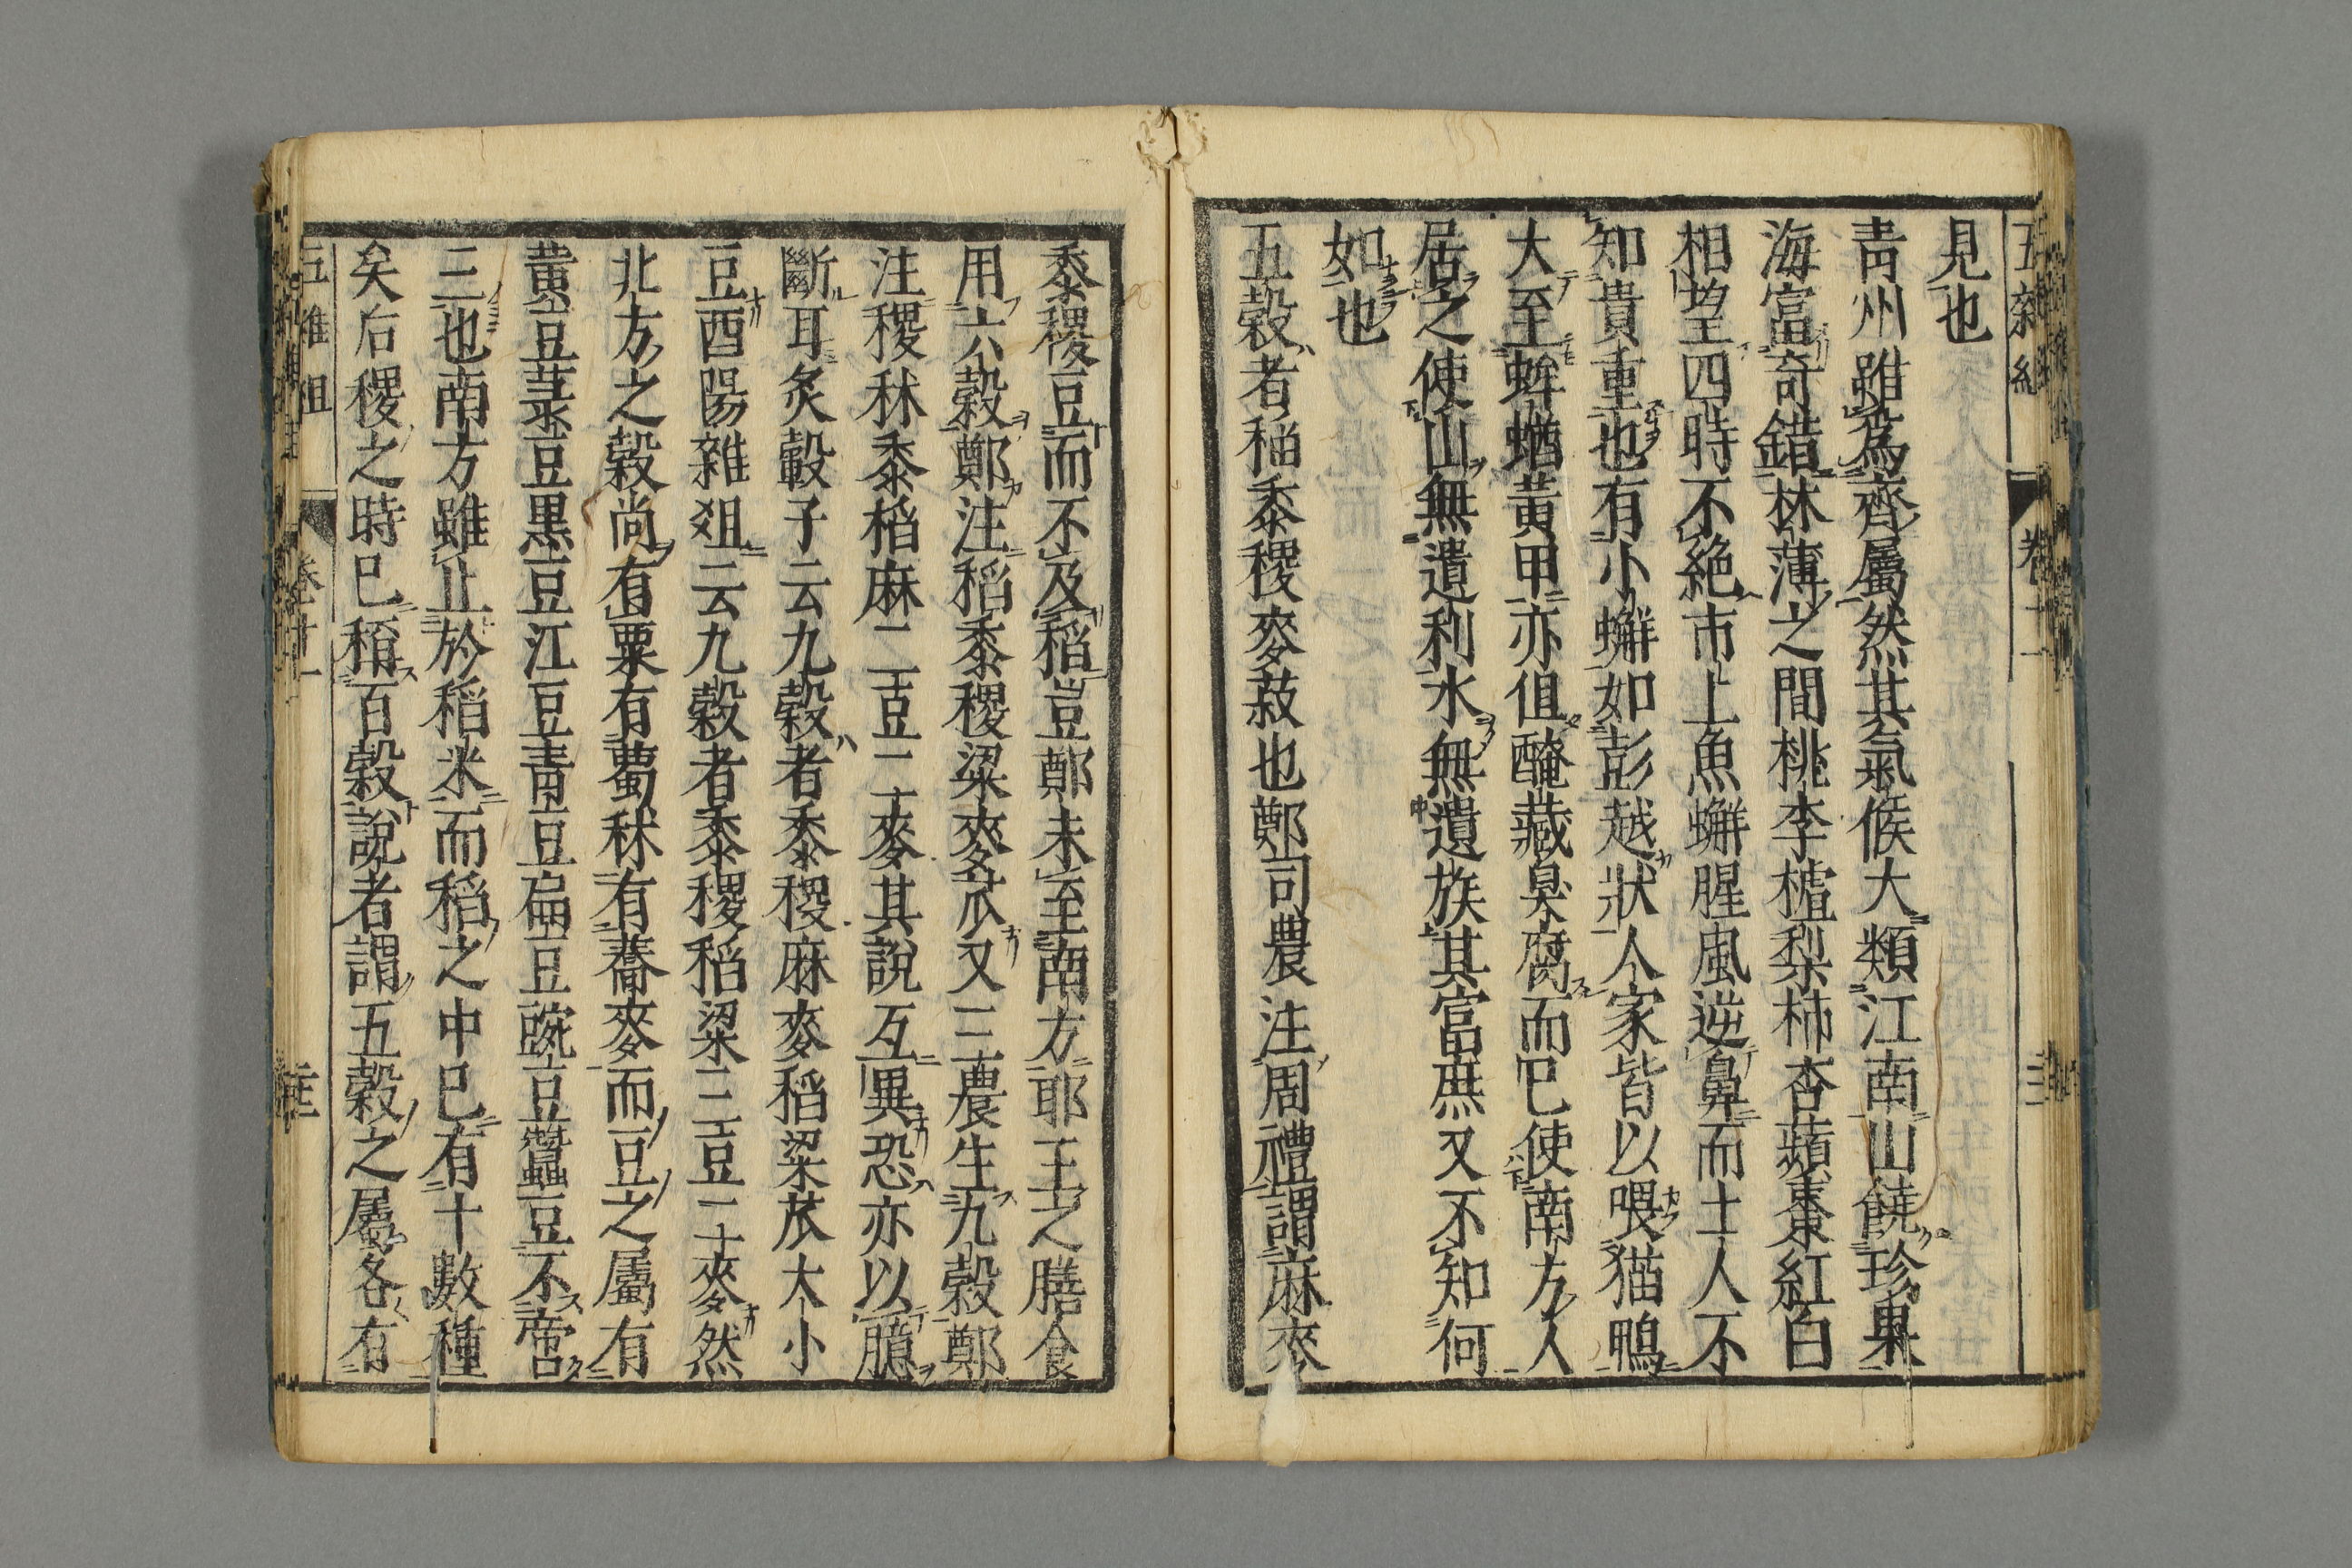 五雜組 卷十一
見也
青州雖爲齊屬然其氣候大類江南山饒珍果
海富奇錯林薄之間桃李樝梨柿杏蘋棗紅白
相望四時不絶市上魚蠏腥風逆鼻而土人不
知貴重也有小蠏如彭越狀人家皆以喂猫鴨
大至蛑蝤黄甲亦但醃藏臭腐而已使南方人
居之使山無遺利水無遺族其富庶又不知何
如也
五穀者稻黍稷麥菽也鄭司農注周禮謂麻麥
黍稷豆而不及稻豈鄭未至南方耶王之膳食
用六穀鄭注稻黍稷粱麥苽又三農生九穀鄭
注稷秫黍稻麻二豆二麥其說互異恐亦以臆
斷耳炙轂子云九穀者黍稷麻麥稻粱苽大小
豆酉陽雜俎云九穀者黍稷稻粱三豆二麥然
北方之穀尚有粟有蜀秫有蕎麥而豆之屬有
黄豆菉豆黑豆江豆青豆扁豆豌豆蠶豆不啻
三也南方雖止於稻米而稻之中已有十數種
矣后稷之時已稱百穀說者謂五穀之屬各有
五雜組 卷十一